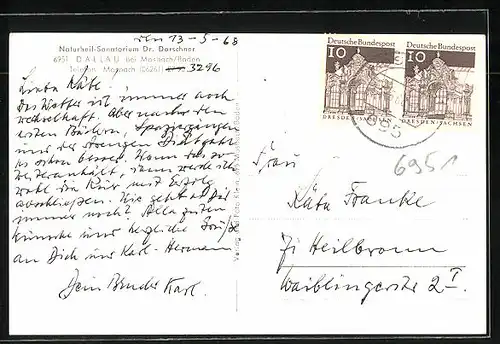 den 13-5-68
Naturheil-Sanatorium Dr. Dorschner
6951 DALLAU bei Mosbach/Baden
Telefon: Mosbach (06261) 3296
Liebe Käte.
Das Wetter ist immer noch
wechselhaft. Aber nach den
ersten Bädern, Spaziergängen
und der strengen Diät geht
es schon besser. Wenn das so
weiter anhält, dann werde ich
wohl die Kur mit Erfolg
abschließen. Wie geht es Dir
immer noch? Alle guten
Wünsche und herzliche Grüße
an Dich und Karl-Hermann
Dein Bruder Karl.
Deutsche Bundespost
10
DRESDEN/SACHSEN
Deutsche Bundespost
10
DRESDEN/SACHSEN
695
6951
Frau
Käte Franke
7 Heilbronn
Waiblingerstr 2 I.